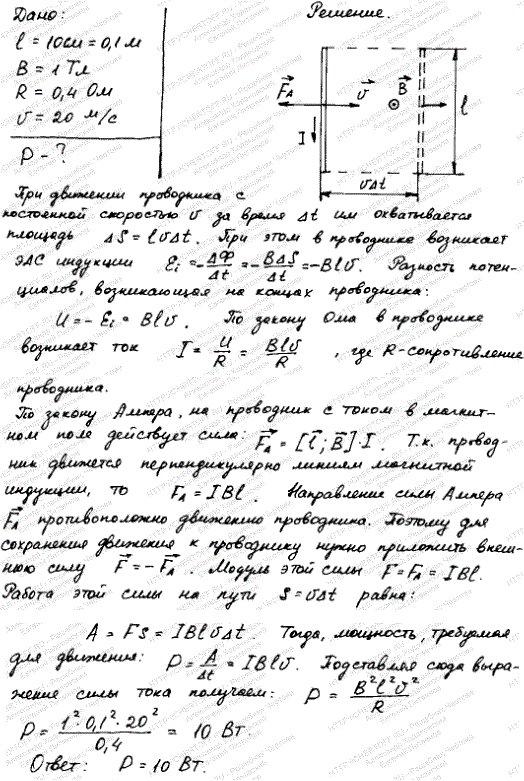 Дано: Решение.
l = 10см = 0,1 м
B = 1 Тл
R = 0,4 Ом
υ = 20 м/с
P - ?
F⃗A υ⃗ B⃗ l
I
υΔt
При движении проводника с
постоянной скоростью υ за время Δt им охватывается
площадь ΔS = lυΔt. При этом в проводнике возникает
ЭДС индукции Ei = -ΔФ/Δt = -BΔS/Δt = -Blυ. Разность потен-
циалов, возникающая на концах проводника:
U = - Ei = Blυ. По закону Ома в проводнике
возникает ток I = U/R = Blυ/R, где R-сопротивление
проводника.
По закону Ампера, на проводник с током в магнит-
ном поле действует сила: F⃗A = [l⃗; B⃗]·I. Т.к. провод-
ник движется перпендикулярно линиям магнитной
индукции, то FA = IBl. Направление силы Ампера
F⃗A противоположно движению проводника. Поэтому для
сохранения движения к проводнику нужно приложить внеш-
нюю силу F⃗ = -F⃗A. Модуль этой силы F = FA = IBl.
Работа этой силы на пути S = υΔt равна:
A = Fs = IBlυΔt. Тогда, мощность, требуемая
для движения: P = A/Δt = IBlυ. Подставляя сюда выра-
жение силы тока получаем: P = B²l²υ²/R
P = 1²·0,1²·20²/0,4 = 10 Вт.
Ответ: P = 10 Вт.